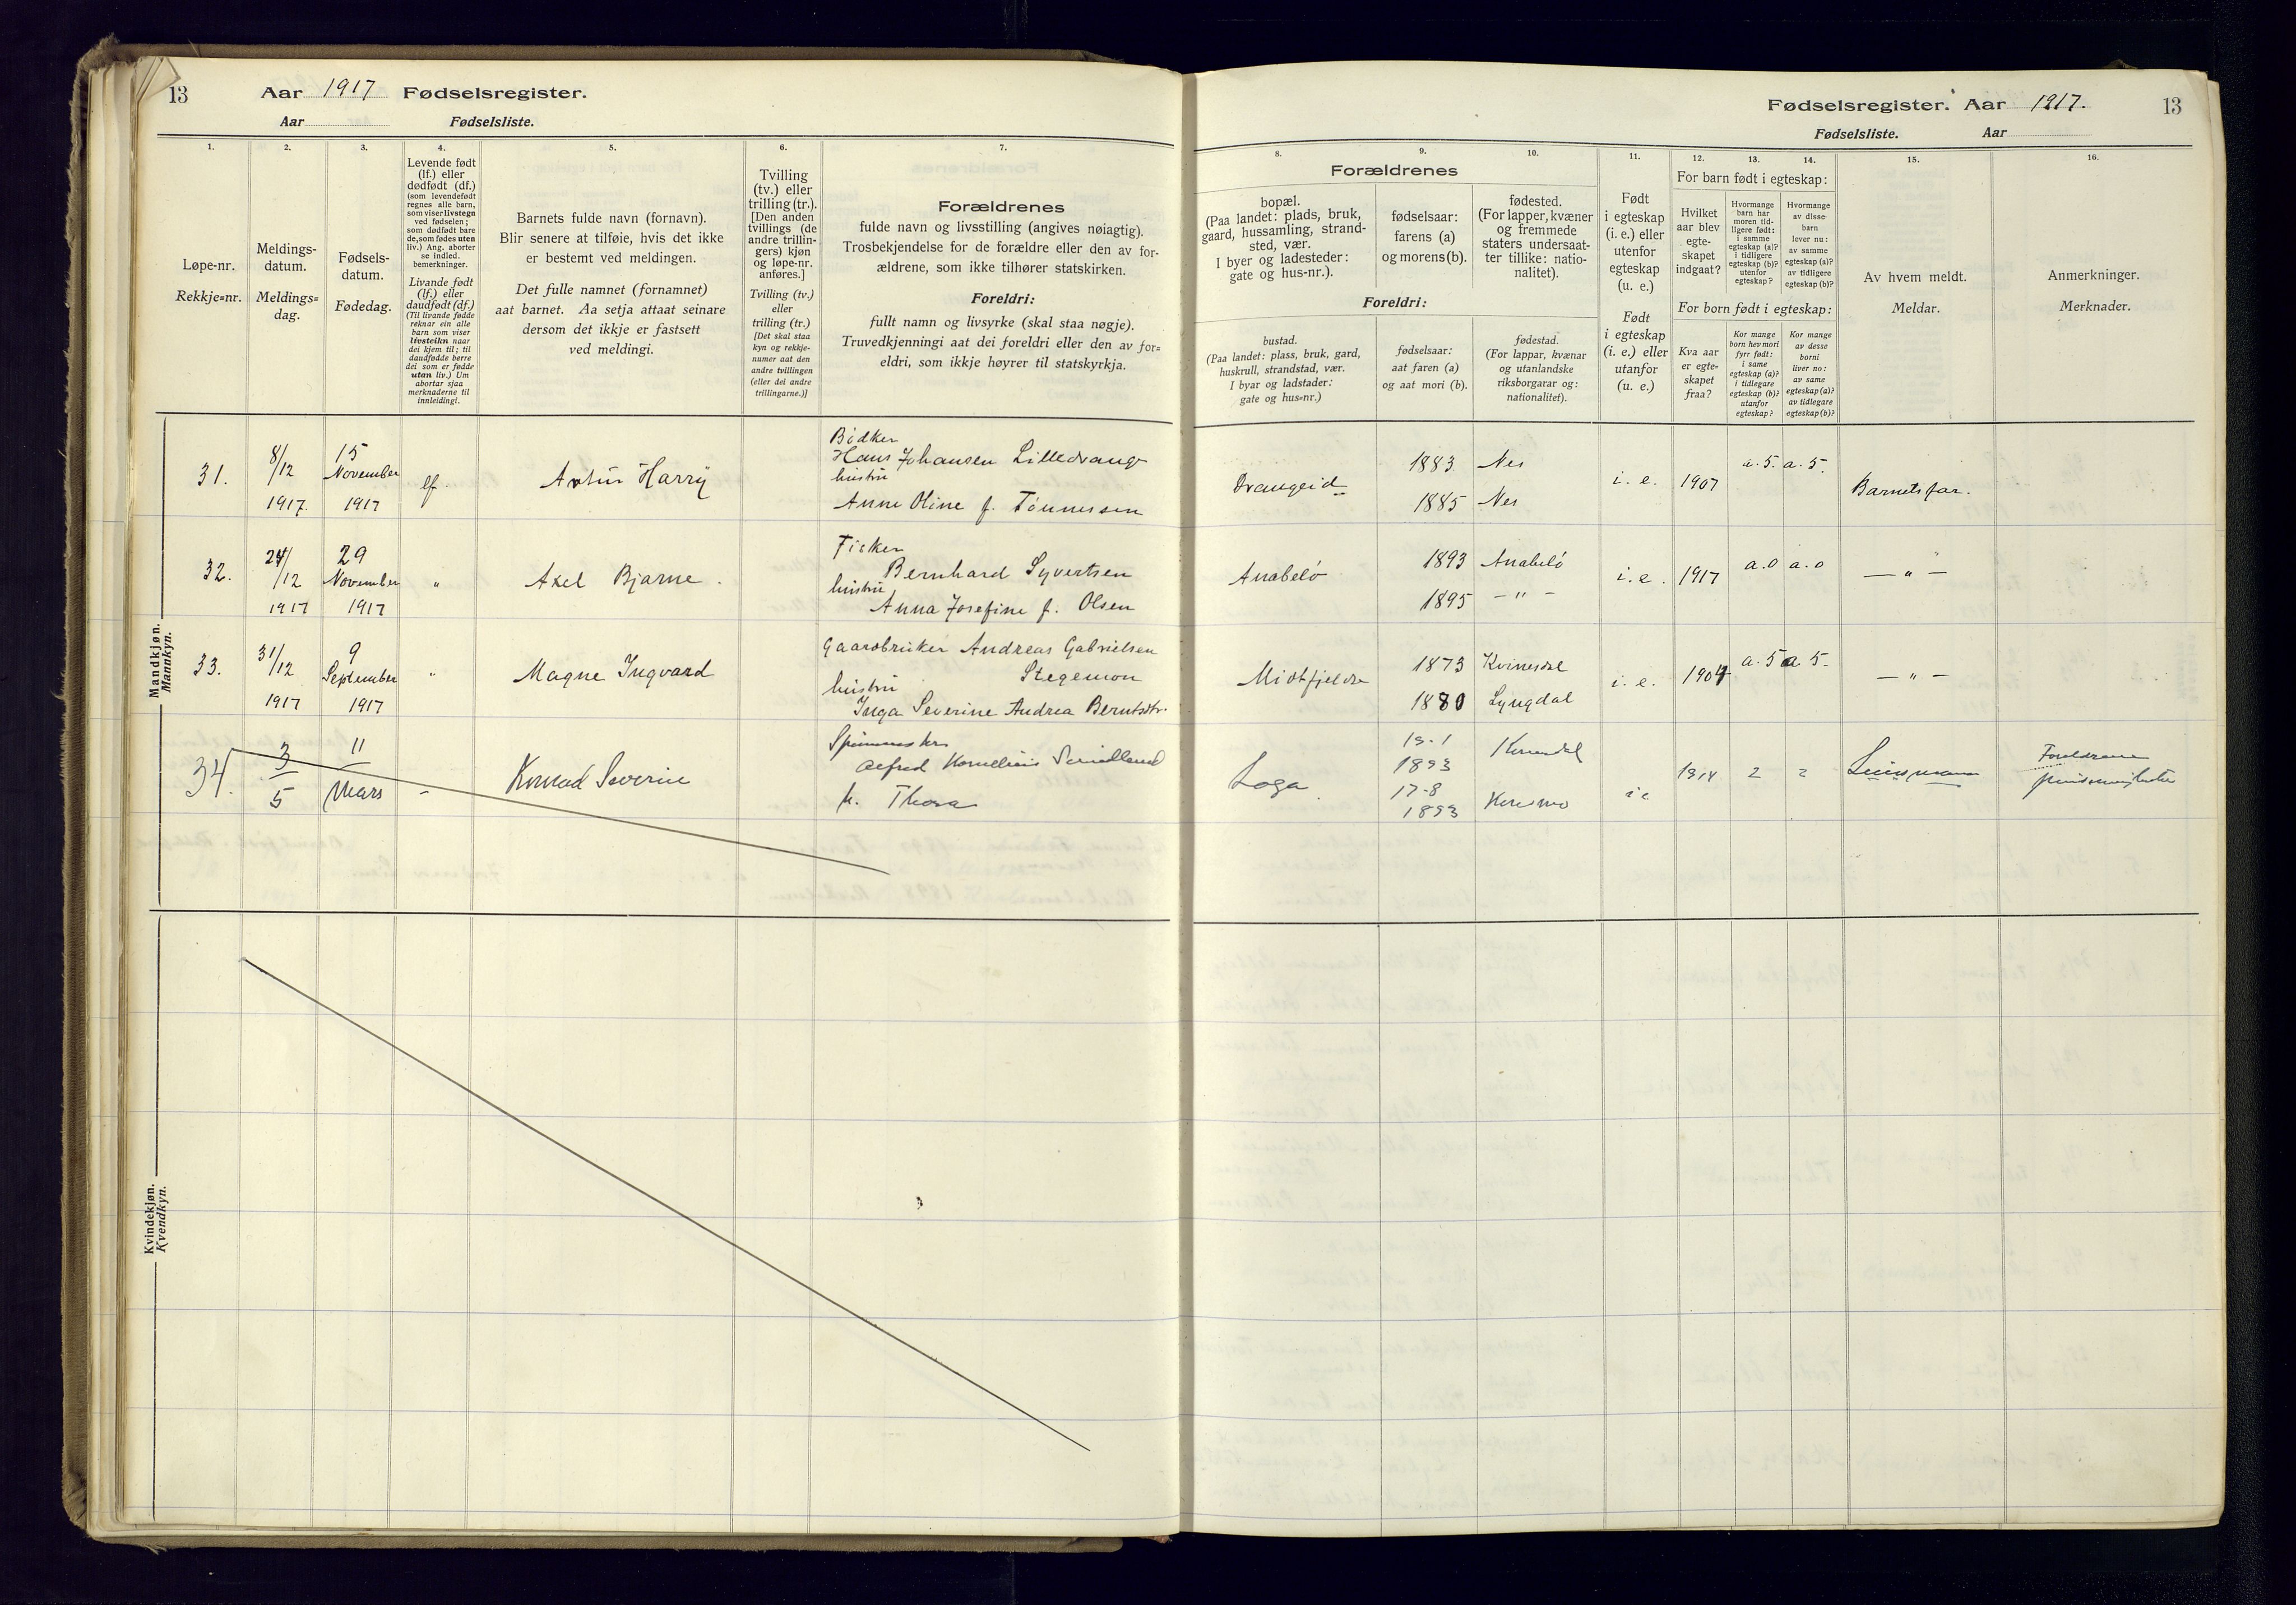 13
Aar 1917 Fødselsregister.
Aar Fødselsliste.
1.
Løpe-nr.
Rekkje=nr.
2.
Meldings-
datum.
Meldings=
dag.
3.
Fødsels-
datum.
Fødedag.
4.
Levende født
(lf.) eller
dødfødt (df.)
(som levendefødt
regnes alle barn,
som viser livstegn
ved fødselen;
som dødfødt bare
de, som fødes uten
liv.) Ang. aborter
se indled.
bemerkninger.
Livande født
(lf.) eller
daudfødt (df.)
(Til livande fødde
reknar ein alle
barn som viser
livsteikn naar
dei kjem til; til
daudfødde berre
dei som er fødde
utan liv.) Um
abortar sjaa
merknaderne til
innleidingi.
5.
Barnets fulde navn (fornavn).
Blir senere at tilføie, hvis det ikke
er bestemt ved meldingen.
Det fulle namnet (fornamnet)
aat barnet. Aa setja attaat seinare
dersom det ikkje er fastsett
ved meldingi.
6.
Tvilling
(tv.) eller
trilling (tr.).
[Den anden
tvillings (de
andre trillin-
gers) kjøn
og løpe-nr.
anføres.]
Tvilling (tv.)
eller
trilling (tr.)
[Det skal staa
kyn og rekkje-
numer aat den
andre tvillingen
(eller dei andre
trillingarne.)]
7.
Forældrenes
fulde navn og livsstilling (angives nøiagtig).
Trosbekjendelse for de forældre eller den av for-
ældrene, som ikke tilhører statskirken.
Foreldri:
fullt namn og livsyrke (skal staa nøgje).
Truvedkjenningi aat dei foreldri eller den av for=
eldri, som ikkje høyrer til statskyrkja.
Mandkjøn.
Mannkyn.
31.
8/12
1917.
15
November
1917
lf.
Artur Harry
Bødker
Hans Johansen Lilledrange
hustru
Anne Oline f. Tønnessen
32.
24/12
1917
29
November
1917
"
Axel Bjarne.
Fisker
Bernhard Syvertsen
hustru
Anna Josefine f. Olsen
33.
31/12
1917
9
September
1917
"
Magne Ingvard
Gaardbruker Andreas Gabrielsen
Stegemon
hustru
Inga Severine Andrea Berntsdtr.
34.
3
5
11
Mars
Konrad Severin
Alfred Kornelius
h. Thora
Kvindekjøn.
Kvendkyn.
Fødselsregister. Aar 1917. 13
Fødselsliste. Aar
8.
Forældrenes
bopæl.
(Paa landet: plads, bruk,
gaard, hussamling, strand-
sted, vær.
I byer og ladesteder:
gate og hus-nr.).
Foreldri:
bustad.
(Paa landet: plass, bruk, gard,
huskrull, strandstad, vær.
I byar og ladstader:
gate og hus=nr.)
9.
fødselsaar:
farens (a)
og morens (b).
fødselsaar:
aat faren (a)
og aat mori (b).
10.
fødested.
(For lapper, kvæner
og fremmede
staters undersaat-
ter tillike: natio-
nalitet).
fødestad.
(For lappar, kvænar
og utanlandske
riksborgarar og:
nationalitet).
11.
Født
i egteskap
(i. e.) eller
utenfor
egteskap
(u. e.)
Født
i egteskap
(i. e.) eller
utanfor
(u. e.)
For barn født i egteskap:
12.
Hvilket
aar blev
egte-
skapet
indgaat?
13.
Hvormange
barn har
moren tid-
ligere født:
i samme
egteskap (a)?
i tidligere
egteskap (b)?
utenfor
egteskap?
14.
Hvormange
av disse
barn
lever nu:
av samme
egteskap (a)?
av tidligere
egteskap (b)?
For born født i egteskap:
Kva aar
er egte=
skapet
fraa?
Kor mange
born hev mori
fyrr født:
i same
egteskap (a)?
i tidlegare
egteskap (b)?
utanfor
egteskap?
Kor mange
av desse
borni
liver no:
av same
egteskap (a)?
av tidlegare
egteskap (b)?
15.
Av hvem meldt.
Meldar.
16.
Anmerkninger.
Merknader.
Drangeid
1883 Nes
1885 Nes
i. e. 1907 a. 5. a. 5.
Barnets far.
Anabelø
1893 Anabelø
1895 — " —
i. e. 1917 a. 0 a. 0
— " —
Midtfjeldre
1873 Kvinesdal
1880 Lyngdal
i. e. 1904 a. 5 a. 5.
— " —
Loga
19-1
1893
17-8
1893
i e 1914 2 2
Foreldrene